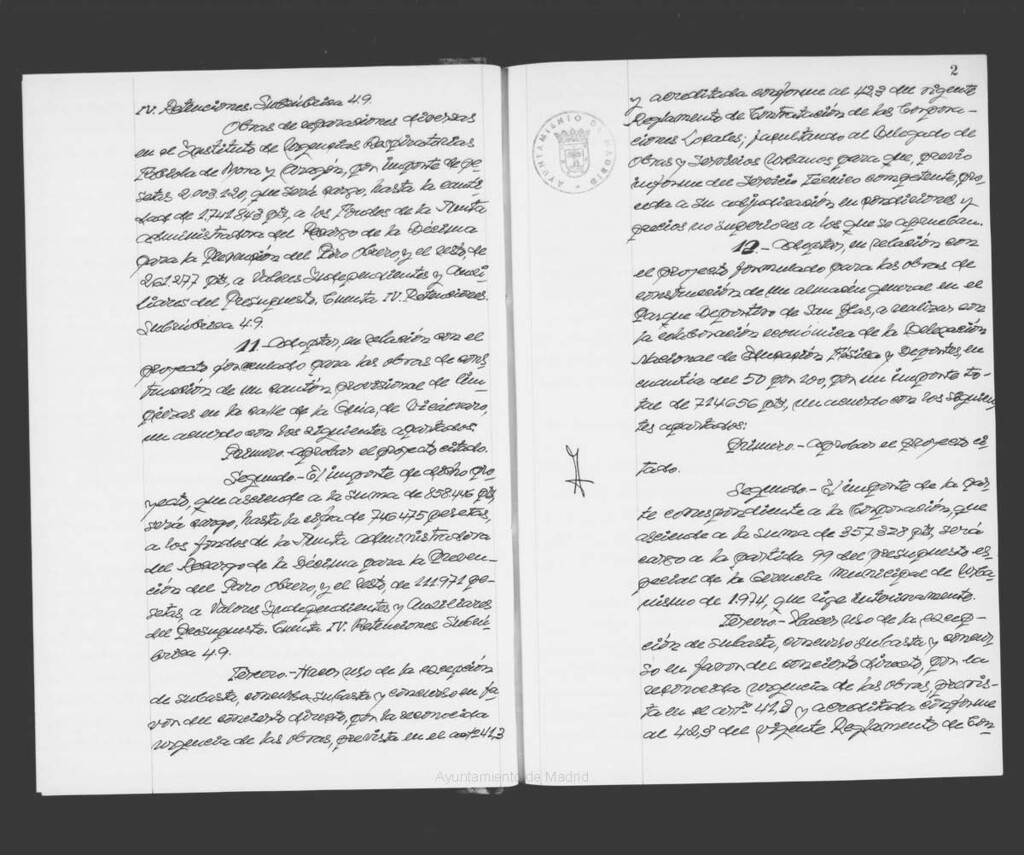 IV. Retenciones. Subrúbrica 49.
Obras de reparaciones diversas
en el Instituto de Urgencias Respiratorias
Poblola de Mona y Aragón, por importe de pe-
setas 2.003.120, que será cargo, hasta la canti-
dad de 1.741.843 pts, a los Fondos de la Junta
administradora del Recargo de la Décima
para la Prevención del Paro Obrero, y el resto, de
261.277 pts, a Valores Independientes y Auxi-
liares del Presupuesto. Cuenta IV. Retenciones.
Subrúbrica 49.
11.- Adoptar, en relación con el
proyecto formulado para las obras de cons-
trucción de un cantón provisional de lim-
piezas en la calle de la Guía, de Vicálvaro,
un acuerdo con los siguientes apartados:
Primero.- Aprobar el proyecto citado.
Segundo.- El importe de dicho pro-
yecto, que asciende a la suma de 858.446 pts,
será cargo, hasta la cifra de 746.475 pesetas,
a los fondos de la Junta administradora
del Recargo de la Décima para la Preven-
ción del Paro Obrero, y el resto, de 111.971 pe-
setas, a Valores Independientes y Auxiliares
del Presupuesto. Cuenta IV. Retenciones. Subrú-
brica 49.
Tercero.- Hacer uso de la excepción
de subasta, concurso subasta y concurso en fa-
vor del concierto directo, por la reconocida
urgencia de las obras, prevista en el artº 41,3
2
y acreditada conforme al 42,3 del vigente
Reglamento de Contratación de las Corpora-
ciones Locales; facultando al Delegado de
Obras y Servicios Urbanos para que, previo
informe del Servicio Técnico competente, pro-
ceda a su adjudicación en condiciones y
precios no superiores a los que se aprueban.
12.- Adoptar, en relación con
el proyecto formulado para las obras de
construcción de un almacén general en el
Parque Deportivo de San Blas, a realizar con
la colaboración económica de la Delegación
Nacional de Educación Física y Deportes, en
cuantía del 50 por 100, por un importe to-
tal de 714.656 pts, un acuerdo con los siguien-
tes apartados:
Primero.- Aprobar el proyecto ci-
tado.
Segundo.- El importe de la par-
te correspondiente a la Corporación, que
asciende a la suma de 357.328 pts, será
cargo a la partida 99 del presupuesto es-
pecial de la Gerencia Municipal de Urba-
nismo de 1.974, que rige interinamente.
Tercero.- Hacer uso de la excep-
ción de subasta, concurso subasta y concur-
so en favor del concierto directo, por la
reconocida urgencia de las obras, previs-
ta en el artº 41,3 y acreditada conforme
al 42,3 del vigente Reglamento de Con-
AYUNTAMIENTO DE MADRID
Ayuntamiento de Madrid